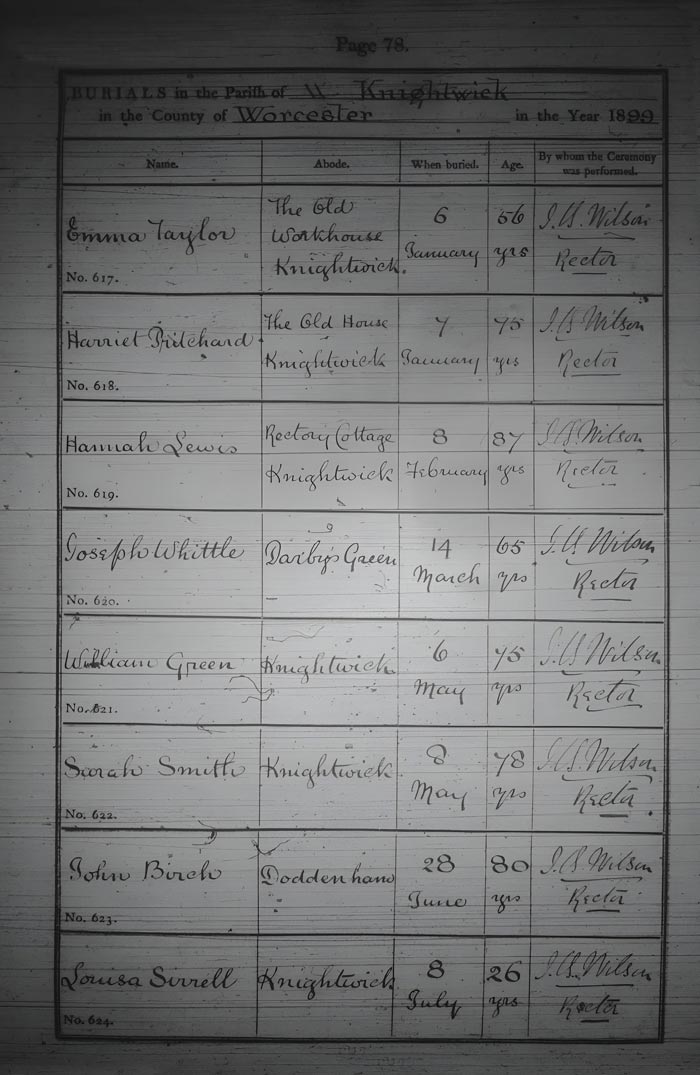 Page 78.
BURIALS in the Parish of Knightwick
in the County of Worcester in the Year 1899
Name. Abode. When buried. Age. By whom the Ceremony was performed.
Emma Taylor
No. 617.
The Old
Workhouse
Knightwick.
6
January
56
yrs
Wilson
Rector
Harriet Pritchard
No. 618.
The Old House
Knightwick
7
January
75
yrs
Wilson
Rector
Hannah Lewis
No. 619.
Rectory Cottage
Knightwick
8
February
87
yrs
Wilson
Rector
Joseph Whittle
No. 620.
Darby's Green
14
March
65
yrs
Wilson
Rector
William Green
No. 621.
Knightwick
6
May
75
yrs
Wilson
Rector
Sarah Smith
No. 622.
Knightwick
8
May
78
yrs
Wilson
Rector
John Birch
No. 623.
Doddenham
28
June
80
yrs
Wilson
Rector
Louisa Sirrell
No. 624.
Knightwick
8
July
26
yrs
Wilson
Rector